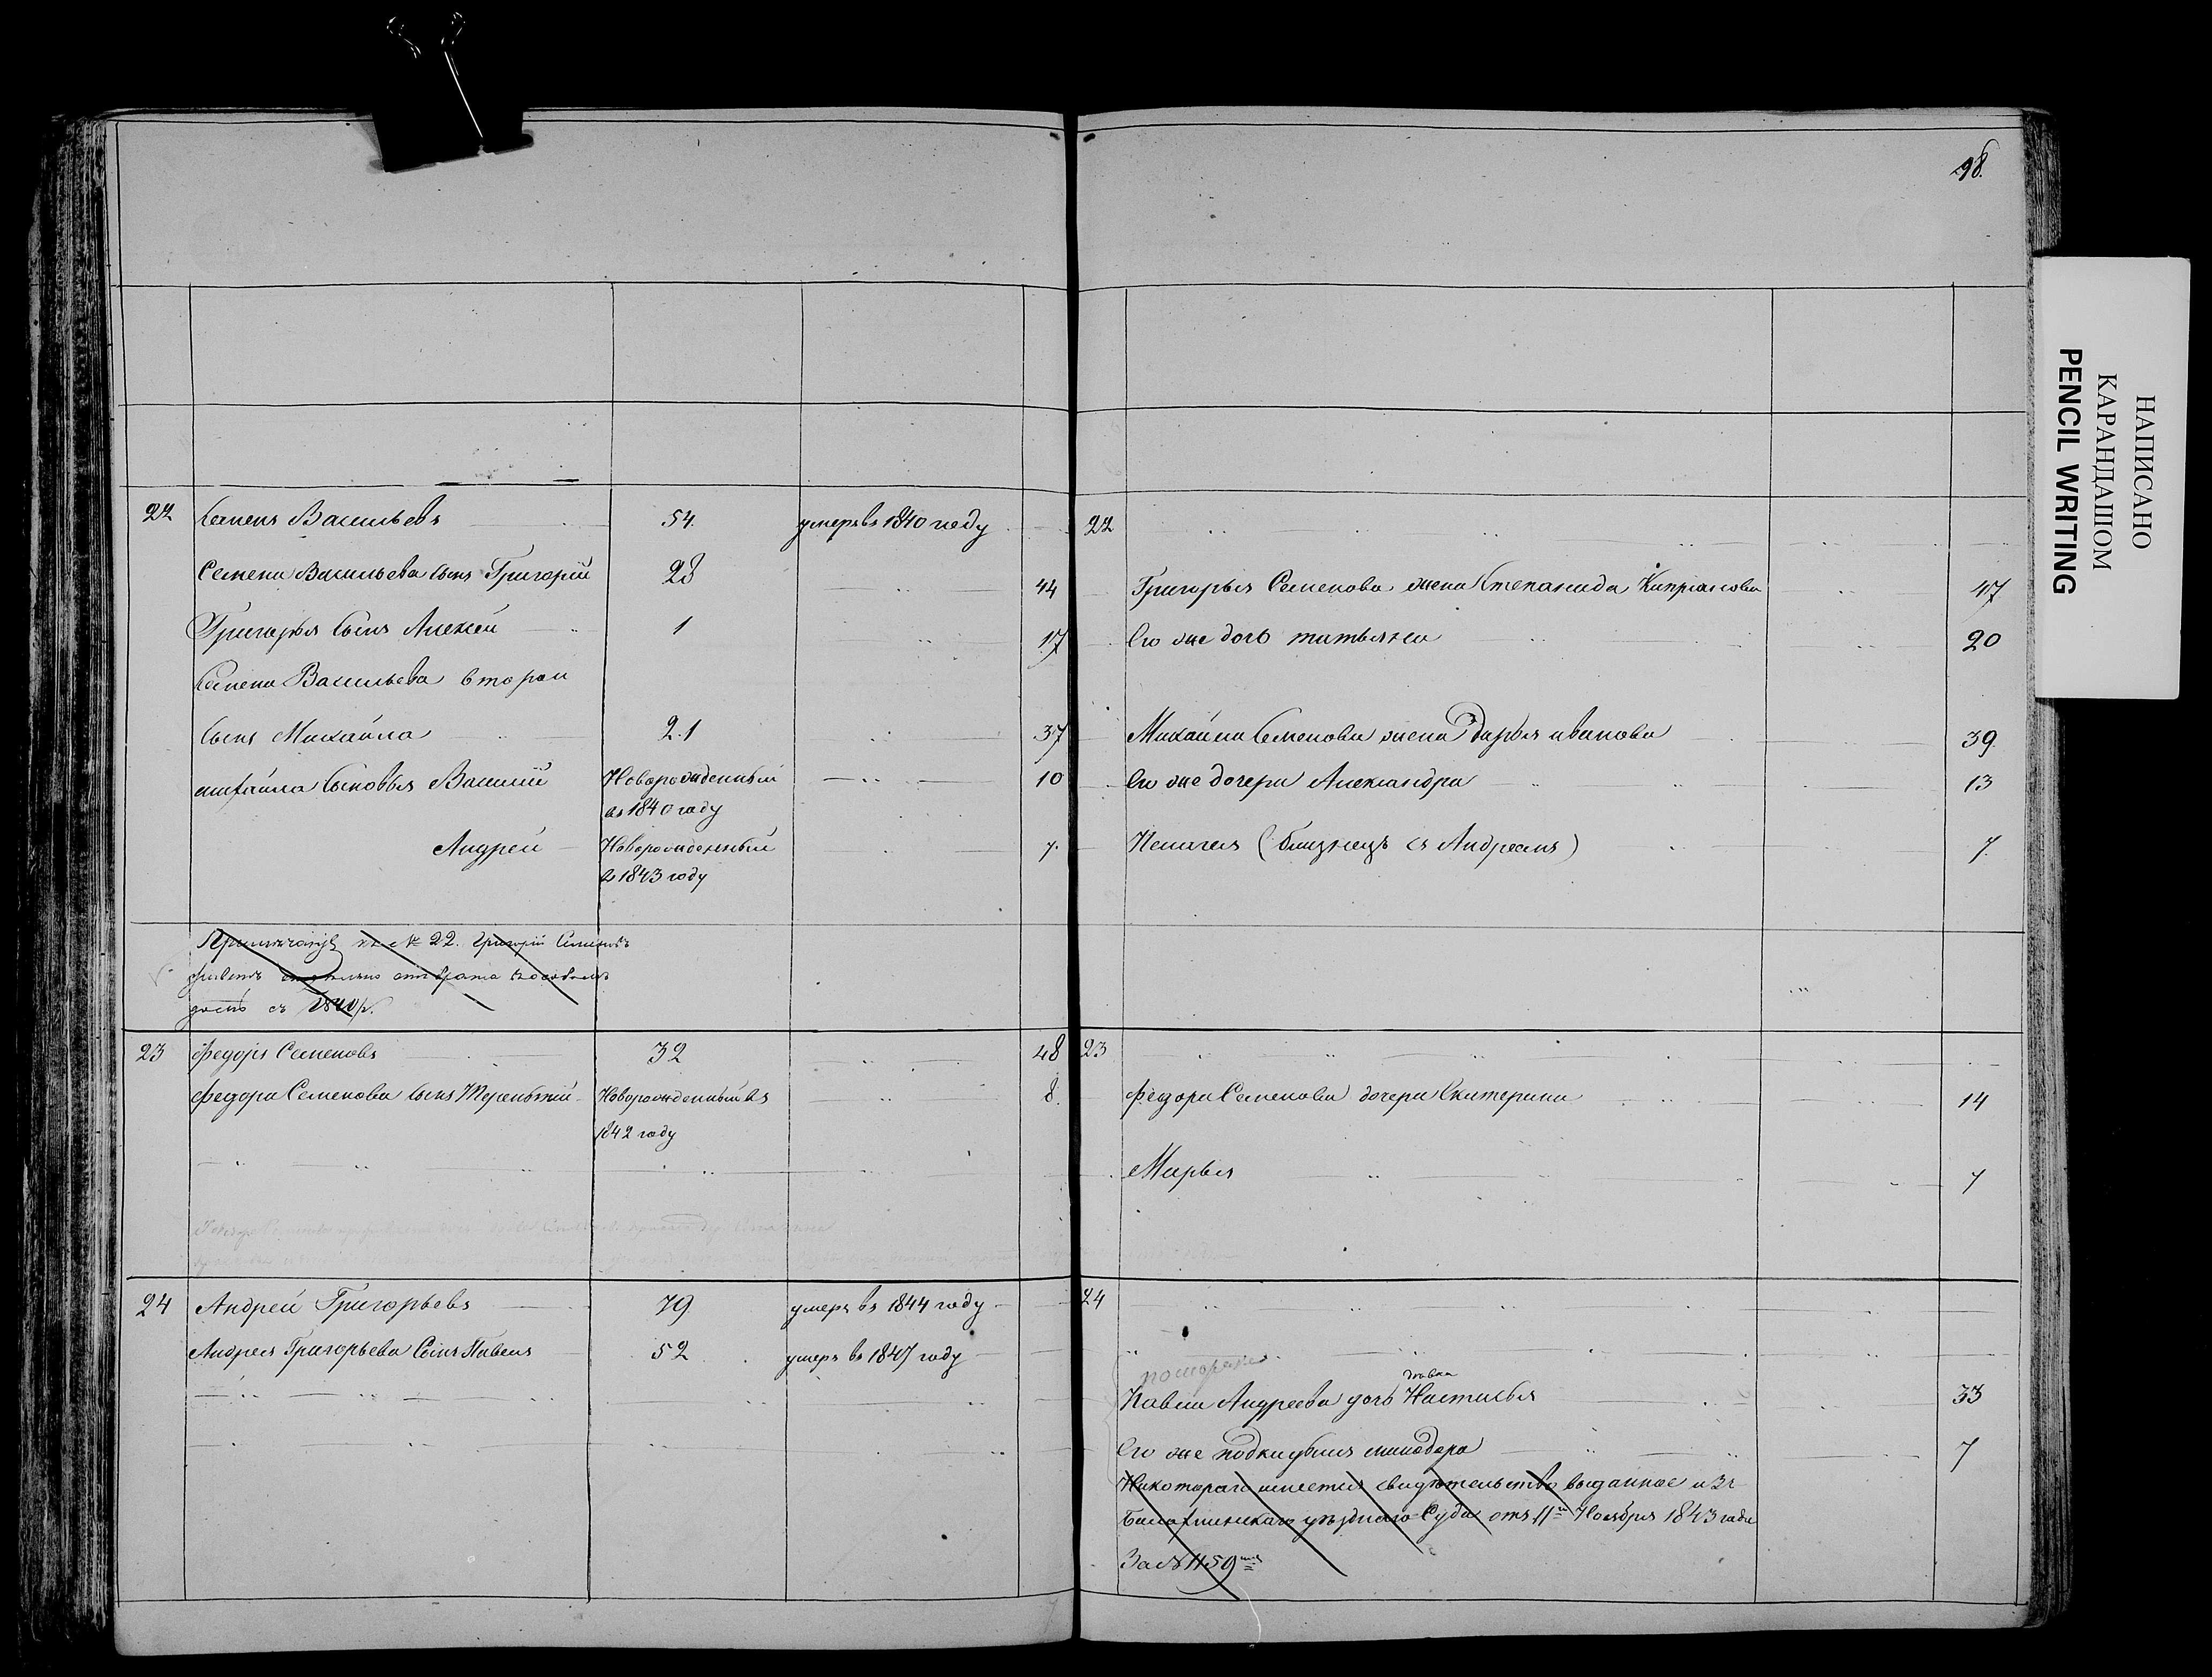 98.
НАПИСАНО
КАРАНДАШОМ
PENCIL WRITING
22 Семенъ Васильевъ 54. умеръ въ 1840 году
Семена Васильева сынъ Григорій 28 44
Григорья сынъ Алексей 1 17
Семена Васильева второй
сынъ Михайла 21 37
михайла сыновья Василий Новорожденный 10
въ 1840 году
Андрей Новорожденный 7.
въ 1843 году
къ № 22. Григорій Семеновъ
отъ брата
съ
23 Федоръ Семеновъ 32 48
Федора Семенова сынъ Терентий Новорожденный въ 8.
1842 году
24 Андрей Григорьевъ 79 умеръ въ 1844 году
Андрея Григорьева Сынъ Павелъ 52 умеръ въ 1847 году
22
Григорья Семенова жена Степанида Кипріанова 47
Его же дочь татьяна 20
Михайла Семенова жена Дарья иванова 39
Его же дочери Александра 13
Пелагея (близнецъ съ Андреемъ) 7.
23
Федора Семенова дочери Екатерина 14
Марья 7
24
девка
Павла Андреева дочь Настасья 33
Его же подкидышъ минодора 7
На которага имеется свидѣтельство выданное изъ
Балахнинскаго уѣзднаго Суда отъ 11го Ноября 1843 года
За № 1159мъ